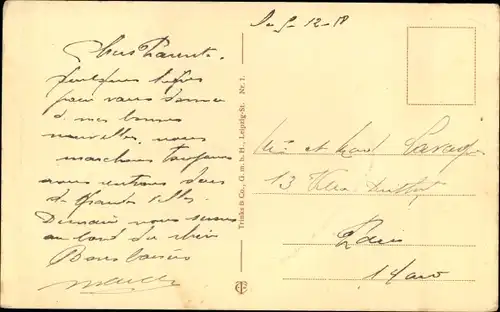 Le 9-12-18
Chers Parents.
quelques lignes
pour vous donner
de mes bonnes
nouvelles. nous
marchons toujours
nous rentrons dans
de Grandes villes.
Demain nous serons
au bord du Rhin
Bons baisers
Trinks & Co., G. m. b. H., Leipzig-St. Nr. 1.
et
13 Villa
Paris